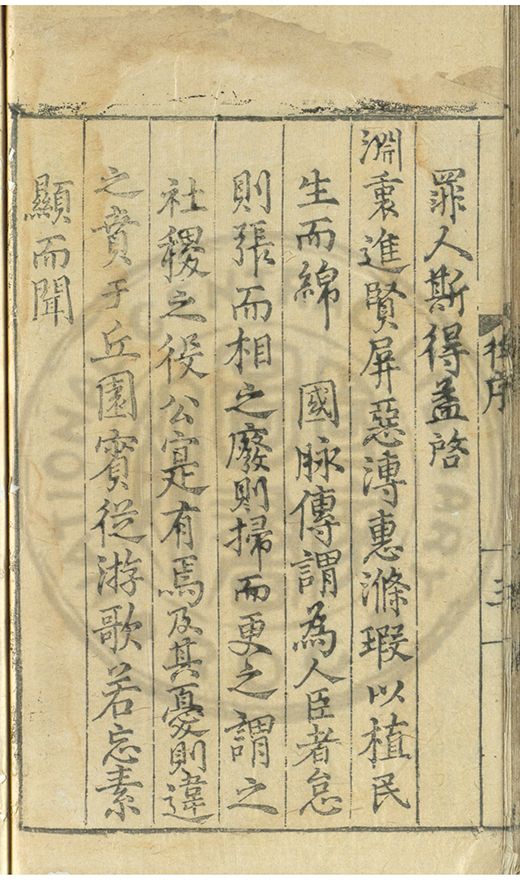 罪人斯得益啓
淵裏進賢屏惡溥惠滌瑕以植民
生而綿 國脉傳謂為人臣者怠
則張而相之廢則掃而更之謂之
社稷之役公寔有焉及其憂則違
之賁于丘園賓從游歌若忘素
顯而聞
序
三